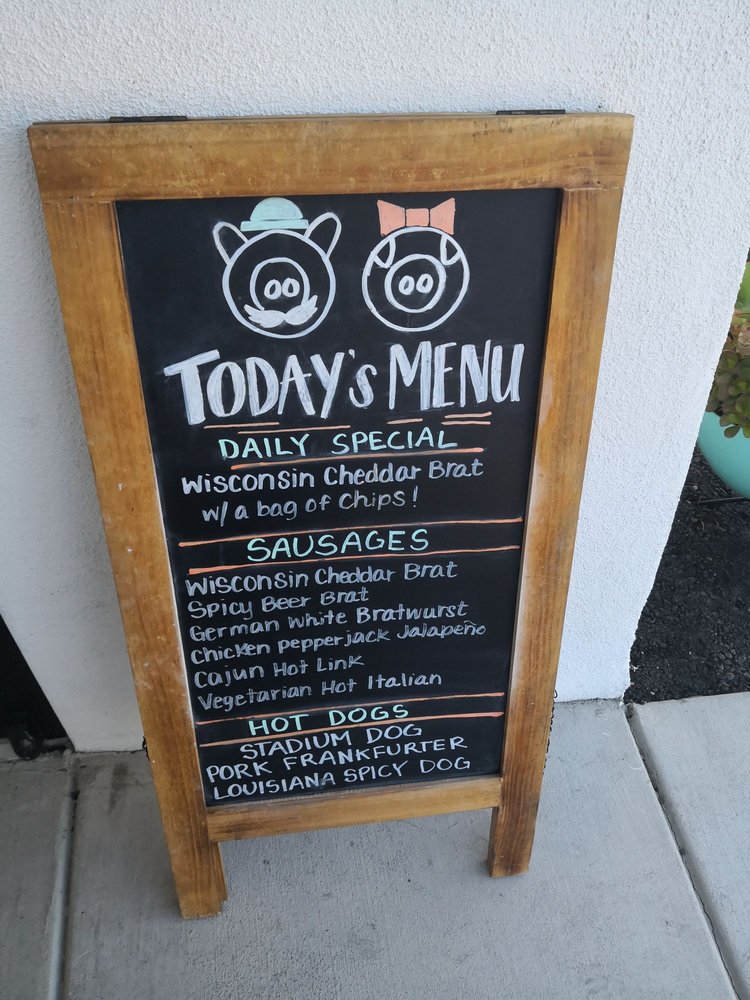 TODAY's MENU
DAILY SPECIAL
Wisconsin Cheddar Brat
w/ a bag of Chips!
SAUSAGES
Wisconsin Cheddar Brat
Spicy Beer Brat
German White Bratwurst
Chicken pepperjack Jalapeño
Cajun Hot Link
Vegetarian Hot Italian
HOT DOGS
STADIUM DOG
PORK FRANKFURTER
LOUISIANA SPICY DOG